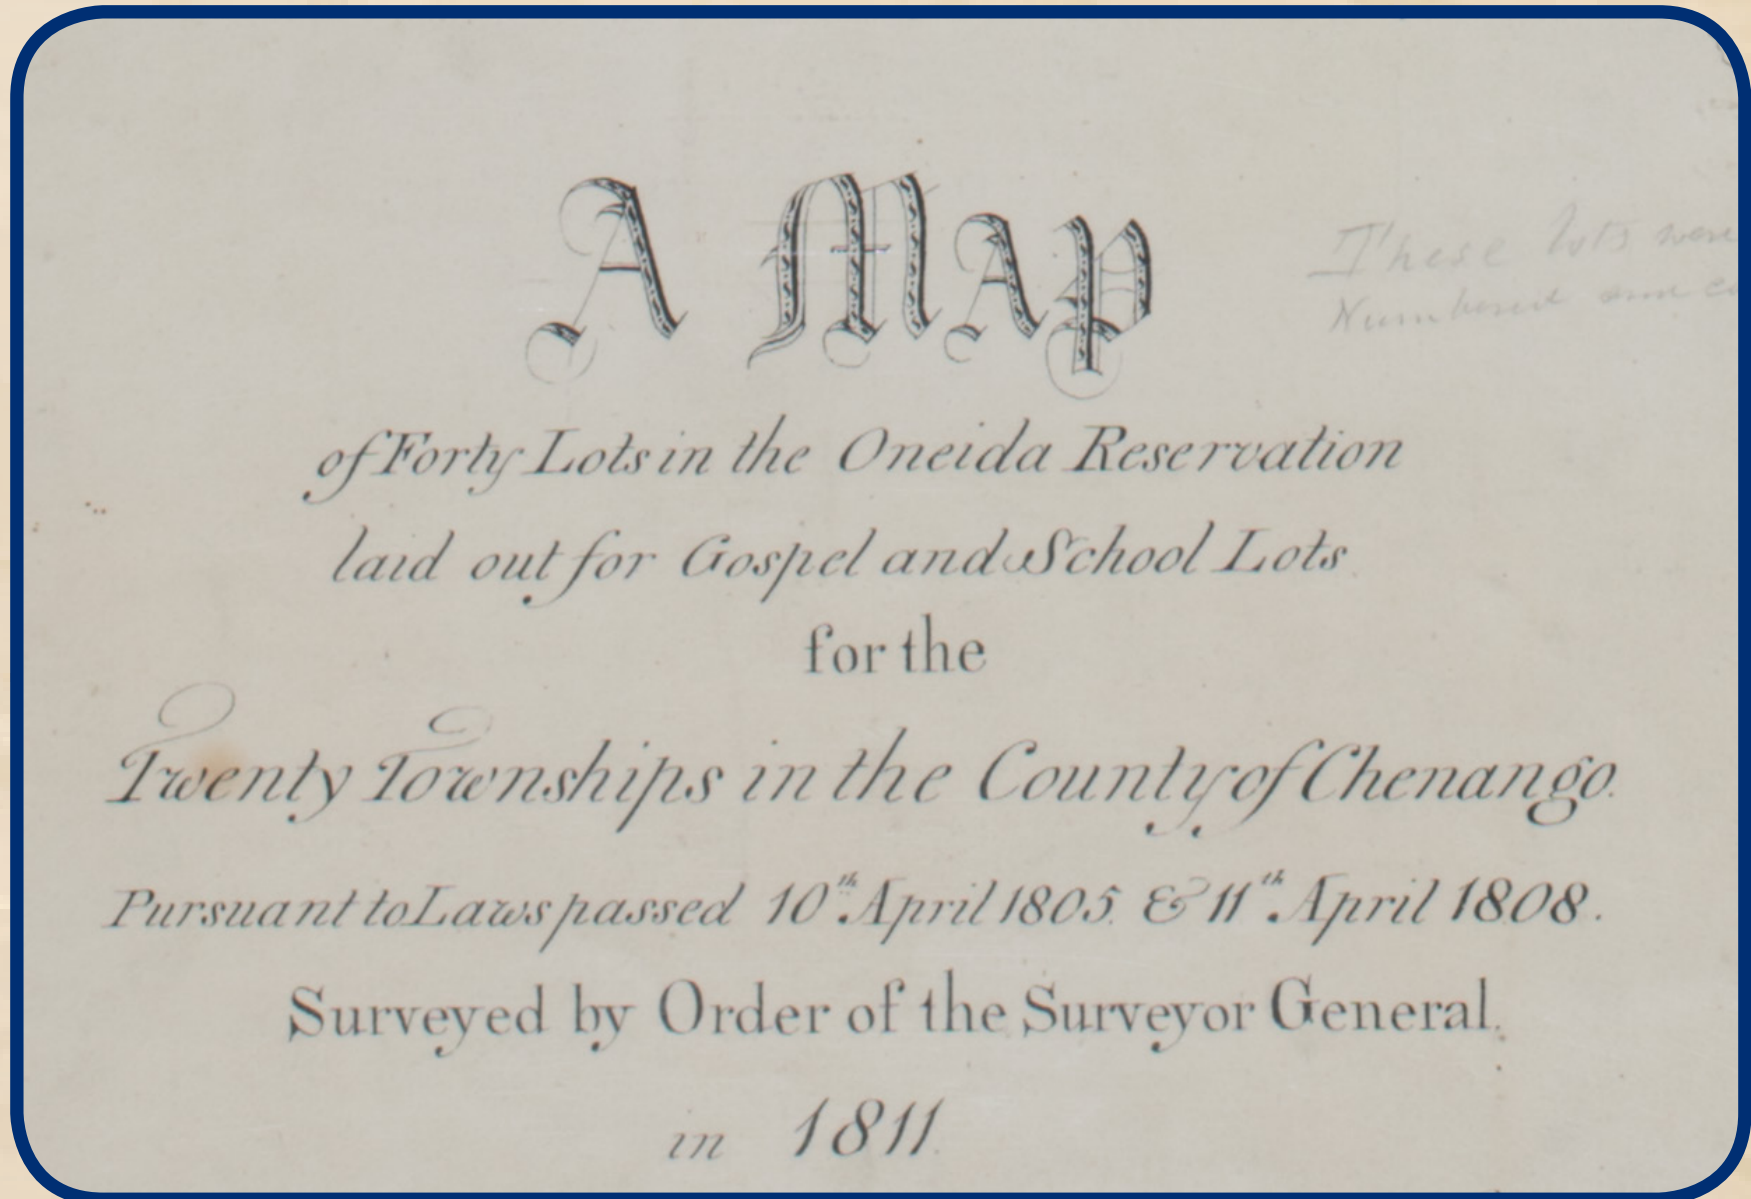 A Map
These lots were
Numbered and
of Forty Lots in the Oneida Reservation
laid out for Gospel and School Lots
for the
Twenty Townships in the County of Chenango.
Pursuant to Laws passed 10th April 1805. & 11th April 1808.
Surveyed by Order of the Surveyor General.
in 1811.